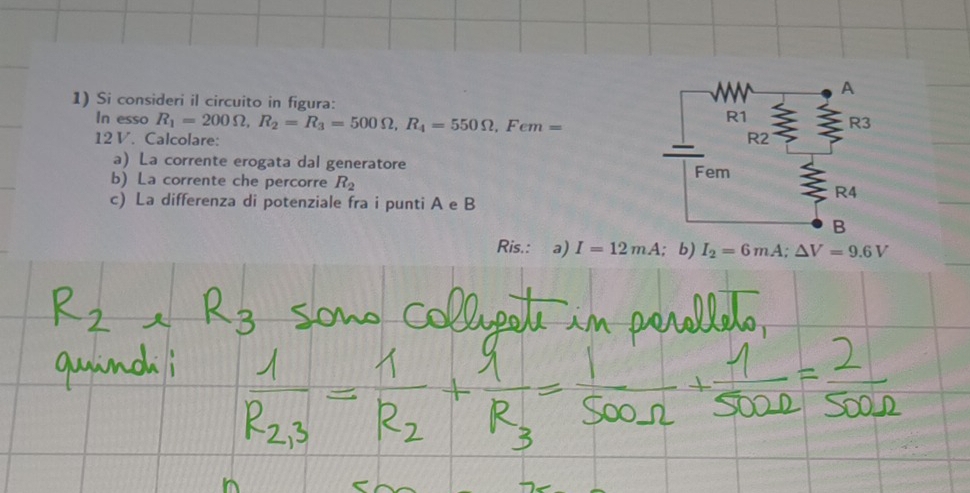 1) Si consideri il circuito in figura:
In esso R₁ = 200 Ω, R₂ = R₃ = 500 Ω, R₄ = 550 Ω, Fem =
12 V. Calcolare:
a) La corrente erogata dal generatore
b) La corrente che percorre R₂
c) La differenza di potenziale fra i punti A e B
A
R1
R2
R3
Fem
R4
B
Ris.: a) I = 12 mA; b) I₂ = 6 mA; ΔV = 9.6 V
R₂ e R₃ sono collegate in parallelo,
quindi: 1/R₂,₃ = 1/R₂ + 1/R₃ = 1/500Ω + 1/500Ω = 2/500Ω